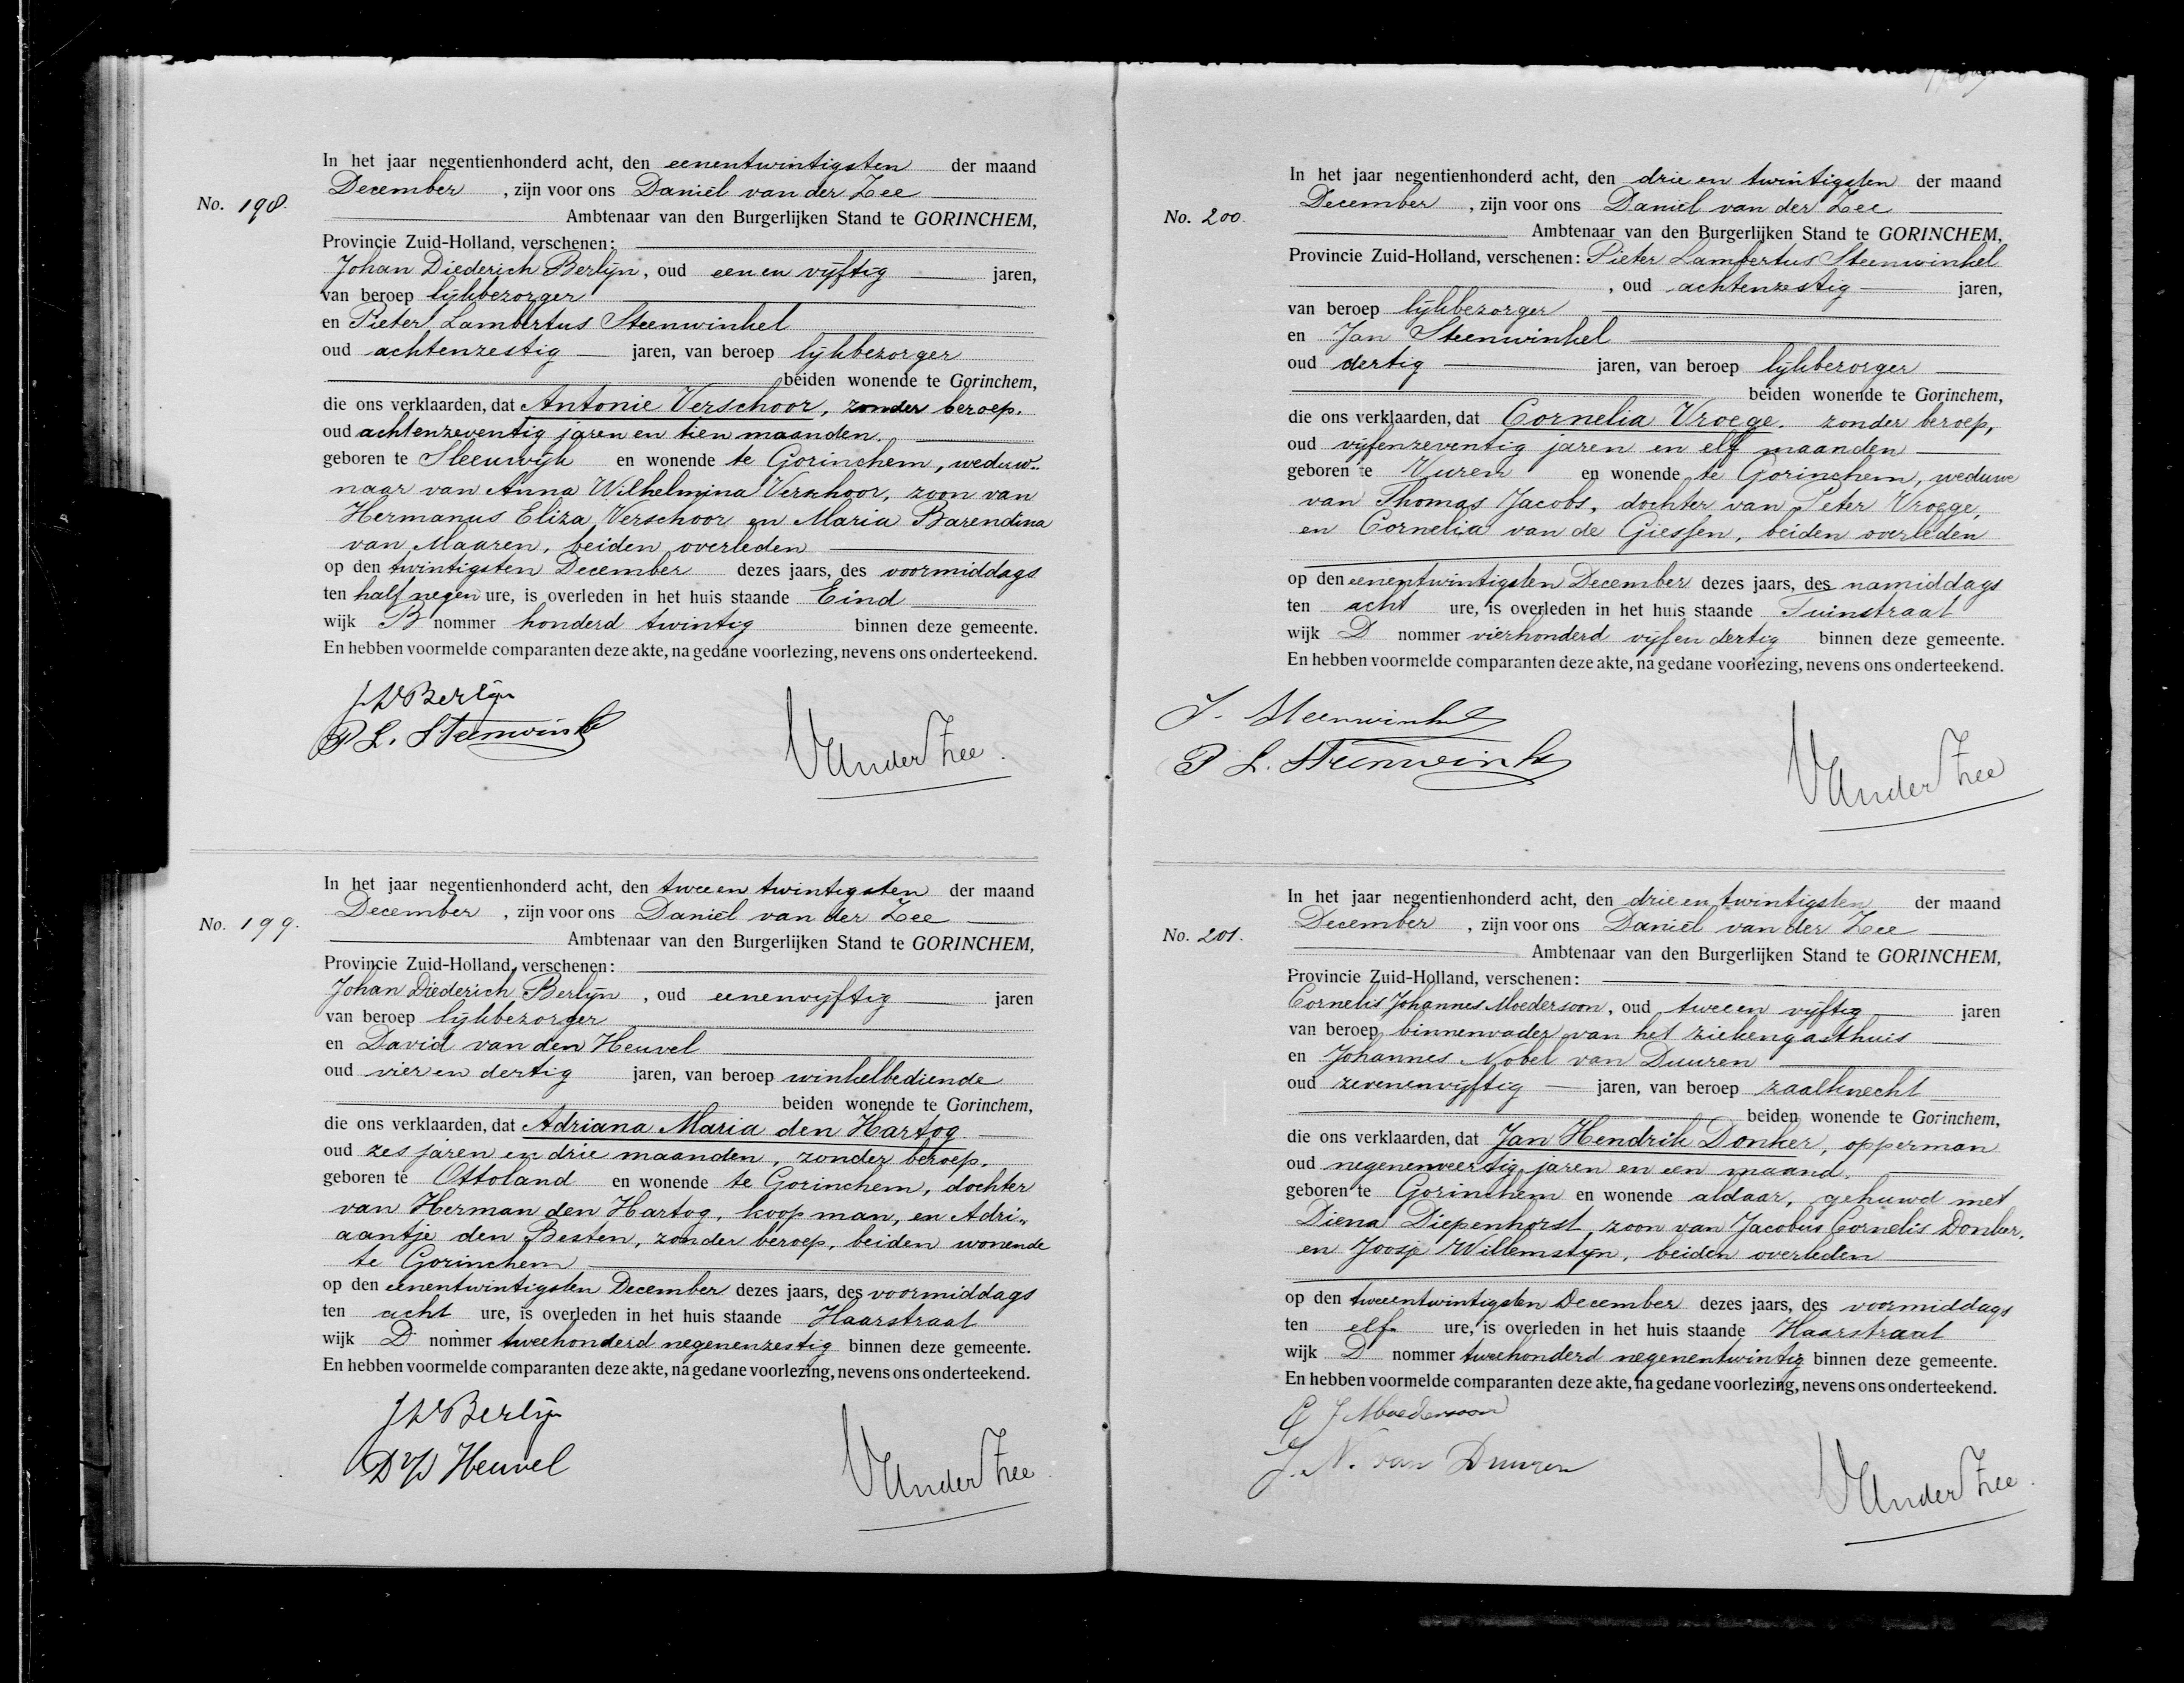 No. 198.
In het jaar negentienhonderd acht, den eenentwintigsten der maand
December, zijn voor ons Daniël van der Zee
Ambtenaar van den Burgerlijken Stand te GORINCHEM,
Provincie Zuid-Holland, verschenen:
Johan Diederich Berlijn, oud een en vijftig jaren,
van beroep lijkbezorger
en Pieter Lambertus Steenwinkel
oud achtenzestig jaren, van beroep lijkbezorger
beiden wonende te Gorinchem,
die ons verklaarden, dat Antonie Verschoor, zonder beroep.
oud achtenzeventig jaren en tien maanden.
geboren te Sleeuwijk en wonende te Gorinchem, weduw-
naar van Anna Wilhelmina Verschoor, zoon van
Hermanus Eliza Verschoor en Maria Barendina
van Maaren, beiden overleden
op den twintigsten December dezes jaars, des voormiddags
ten half negen ure, is overleden in het huis staande Eind
wijk B nommer honderd twintig binnen deze gemeente.
En hebben voormelde comparanten deze akte, na gedane voorlezing, nevens ons onderteekend.
JD Berlijn
P L. Steenwinkel
VanderZee.
No. 199.
In het jaar negentienhonderd acht, den twee en twintigsten der maand
December, zijn voor ons Daniël van der Zee
Ambtenaar van den Burgerlijken Stand te GORINCHEM,
Provincie Zuid-Holland, verschenen:
Johan Diederich Berlijn, oud eenenvijftig jaren
van beroep lijkbezorger
en David van den Heuvel
oud vier en dertig jaren, van beroep winkelbediende
beiden wonende te Gorinchem,
die ons verklaarden, dat Adriana Maria den Hartog
oud zes jaren en drie maanden, zonder beroep.
geboren te Ottoland en wonende te Gorinchem, dochter
van Herman den Hartog, koopman, en Adri-
aantje den Besten, zonder beroep, beiden wonende
te Gorinchem
op den eenentwintigsten December dezes jaars, des voormiddags
ten acht ure, is overleden in het huis staande Haarstraat
wijk D nommer tweehonderd negenenzestig binnen deze gemeente.
En hebben voormelde comparanten deze akte, na gedane voorlezing, nevens ons onderteekend.
JD Berlijn
D v/d Heuvel
VanderZee.
No. 200.
In het jaar negentienhonderd acht, den drie en twintigsten der maand
December, zijn voor ons Daniël van der Zee
Ambtenaar van den Burgerlijken Stand te GORINCHEM,
Provincie Zuid-Holland, verschenen: Pieter Lambertus Steenwinkel
, oud achtenzestig jaren,
van beroep lijkbezorger
en Jan Steenwinkel
oud dertig jaren, van beroep lijkbezorger
beiden wonende te Gorinchem,
die ons verklaarden, dat Cornelia Vroege. zonder beroep,
oud vijfenzeventig jaren en elf maanden
geboren te Vuren en wonende te Gorinchem, weduwe
van Thomas Jacobs, dochter van Peter Vroege,
en Cornelia van de Giessen, beiden overleden
op den eenentwintigsten December dezes jaars, des namiddags
ten acht ure, is overleden in het huis staande Tuinstraat
wijk D nommer vierhonderd vijf en dertig binnen deze gemeente.
En hebben voormelde comparanten deze akte, na gedane voorlezing, nevens ons onderteekend.
J. Steenwinkel
P L. Steenwinkel
VanderZee
No. 201.
In het jaar negentienhonderd acht, den drie en twintigsten der maand
December, zijn voor ons Daniël van der Zee
Ambtenaar van den Burgerlijken Stand te GORINCHEM,
Provincie Zuid-Holland, verschenen:
Cornelis Johannes Moedersoon, oud twee en vijftig jaren
van beroep binnenvader van het ziekengasthuis
en Johannes Nobel van Duuren
oud zevenenvijftig jaren, van beroep zaalknecht
beiden wonende te Gorinchem,
die ons verklaarden, dat Jan Hendrik Donker, opperman
oud negenenveertig jaren en een maand.
geboren te Gorinchem en wonende aldaar, gehuwd met
Diena Diepenhorst, zoon van Jacobus Cornelis Donker,
en Joosje Willemstijn, beiden overleden
op den tweeentwintigsten December dezes jaars, des voormiddags
ten elf ure, is overleden in het huis staande Haarstraat
wijk D nommer tweehonderd negenentwintig binnen deze gemeente.
En hebben voormelde comparanten deze akte, na gedane voorlezing, nevens ons onderteekend.
C J Moedersoon
J. N. van Duuren
VanderZee.